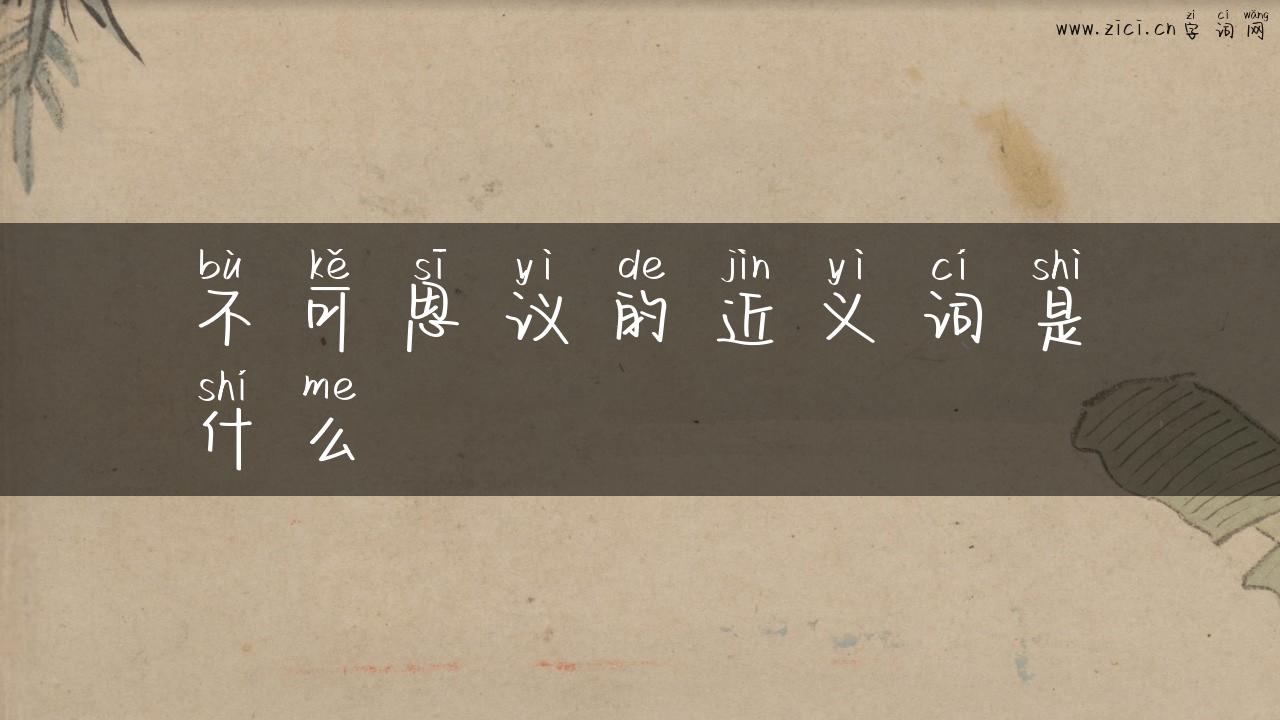 zì cí wǎng
www.zici.cn 字词网
bù kě sī yì de jìn yì cí shì
不可思议的近义词是
shí me
什么